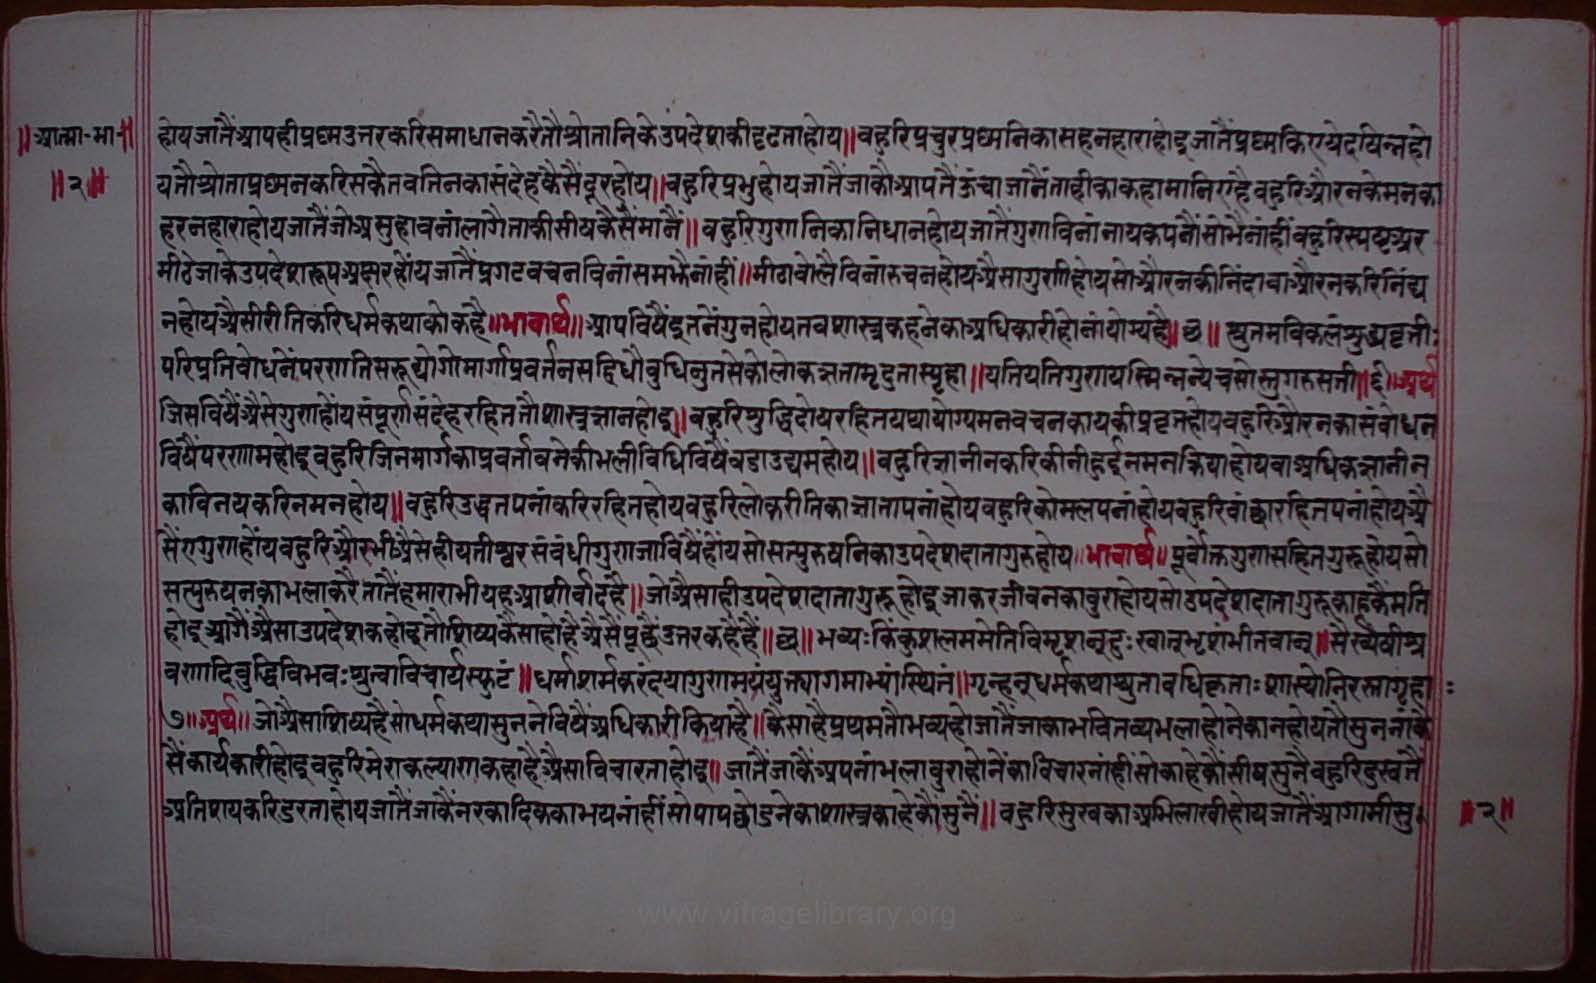 ॥आत्मा-भा-॥
॥२॥
होयजातैंआपहीप्रश्नउत्तरकरिसमाधानकरैतौश्रोतानिकेउपदेशकीदृढताहोय॥बहुरिप्रचुरप्रश्ननिकासहनहाराहोइजातैंप्रश्नकिएखेदखिन्नहो
यतौश्रोताप्रश्ननकरिसकैतबतिनकासंदेहकैसैंदूरहोय॥बहुरिप्रभुहोयजातैंजाकौआपतैंऊंचाजानैंताहीकाकहामानिएहैबहुरिऔरनकेमनका
हरनहाराहोयजातैंजोअसुहावनांलागैताकीसीखकैसैंमानैं॥बहुरिगुणनिकानिधानहोयजातैंगुणविनांनायकपनौंसोभैनांहींबहुरिस्पष्टअर
मीठेजाकेउपदेशरूपअक्षरहोंयजातैंप्रगटवचनविनांसमझैनांहीं॥मीठाबोलैंविनांरुचनहोयअैसागुणीहोयसोऔरनकीनिंदावाऔरनकरिनिंद्य
नहोयअैसीरीतिकरिधर्मकथाकोकहै॥भावार्थ॥आपविषैंइतनेंगुनहोयतबशास्त्रकहनेकाअधिकारीहोनांयोग्यहै॥छ॥श्रुतमविकलंशुद्धावृत्तीः
परिप्रतिबोधनेंपरणतिसरूद्योगोमार्गप्रवर्तनसद्विधौबुधिनुतसेकोलोकज्ञतामृदुतास्पृहा॥यतियतिगुणायस्मिन्नन्येचसोस्तुगरुसती॥६॥अर्थ
जिसविषैंअैसेगुणहोंयसंपूर्णसंदेहरहिततौशास्त्रज्ञानहोइ॥बहुरिशुद्धिदोषरहितयथायोग्यमनवचनकायकीप्रवृत्तहोयबहुरिऔरनकासंबोधन
विषैंपरणामहोइबहुरिजिनमार्गकाप्रवर्तावनेकीभलीविधिविषैंबडाउद्यमहोय॥बहुरिज्ञानीनकरिकीनीहुईनमनक्रियाहोयवाअधिकज्ञानीन
काविनयकरिनमनहोय॥बहुरिउद्धतपनांकरिरहितहोयबहुरिलोकरीतिकाज्ञातापनांहोयबहुरिकोमलपनांहोयबहुरिवांछारहितपनांहोयअै
सैंएगुणहोंयबहुरिऔरभीअैसेहीयतीश्वरसंबंधीगुणजाविषैंहोंयसोसत्पुरुषनिकाउपदेशदातागुरुहोय॥भावार्थ॥पूर्वोक्तगुणसहितगुरूहोयसो
सत्पुरुषनकाभलाकरैतातैंहमाराभीयहआशीर्वादहै॥जोअैसाहीउपदेशदातागुरूहोइजाकरजीवनकाबुराहोयसोउपदेशदातागुरूकाहूकैमति
होइआगैंअैसाउपदेशकहोइतौशिष्यकैसाहोहैअैसैंपूछैंउत्तरकहैहैं॥छ॥भव्यःकिंकुशलममेतिविमृशन्दुःखात्भृशंभीतवान्॥सैख्यैषीश्र
वणादिबुद्धिविभवःश्रुत्वाविचार्यस्फुटं॥धर्मंशर्मकरंदयागुणमयंयुक्त्यागमाभ्यांस्थितं॥गृन्हन्धर्मकथाश्रुतावधिकृताःशास्योनिरस्ताग्रहाः
७॥अर्थ॥जोअैसाशिष्यहैसोधर्मकथासुननेविषैंअधिकारीकियाहै॥कैसाहैप्रथमतौभव्यहोजातैंजाकाभवितव्यभलाहोनेकानहोयतौसुननांकै
सैंकार्यकारीहोइबहुरिमेराकल्याणकहाहैअैसाविचारताहोइ॥जातैंजाकैंअपनांभलाबुराहोनेंकाविचारनांहींसोकाहेकौंसीषसुनैबहुरिदुखतैं
अतिशयकरिडरताहोयजातैंजाकैंनरकादिककाभयनांहींसोपापछोडनेकाशास्त्रकाहेकौंसुनैं॥बहुरिसुखकाअभिलाखीहोयजातैंआगामीसु
॥२॥
www.vitragelibrary.org